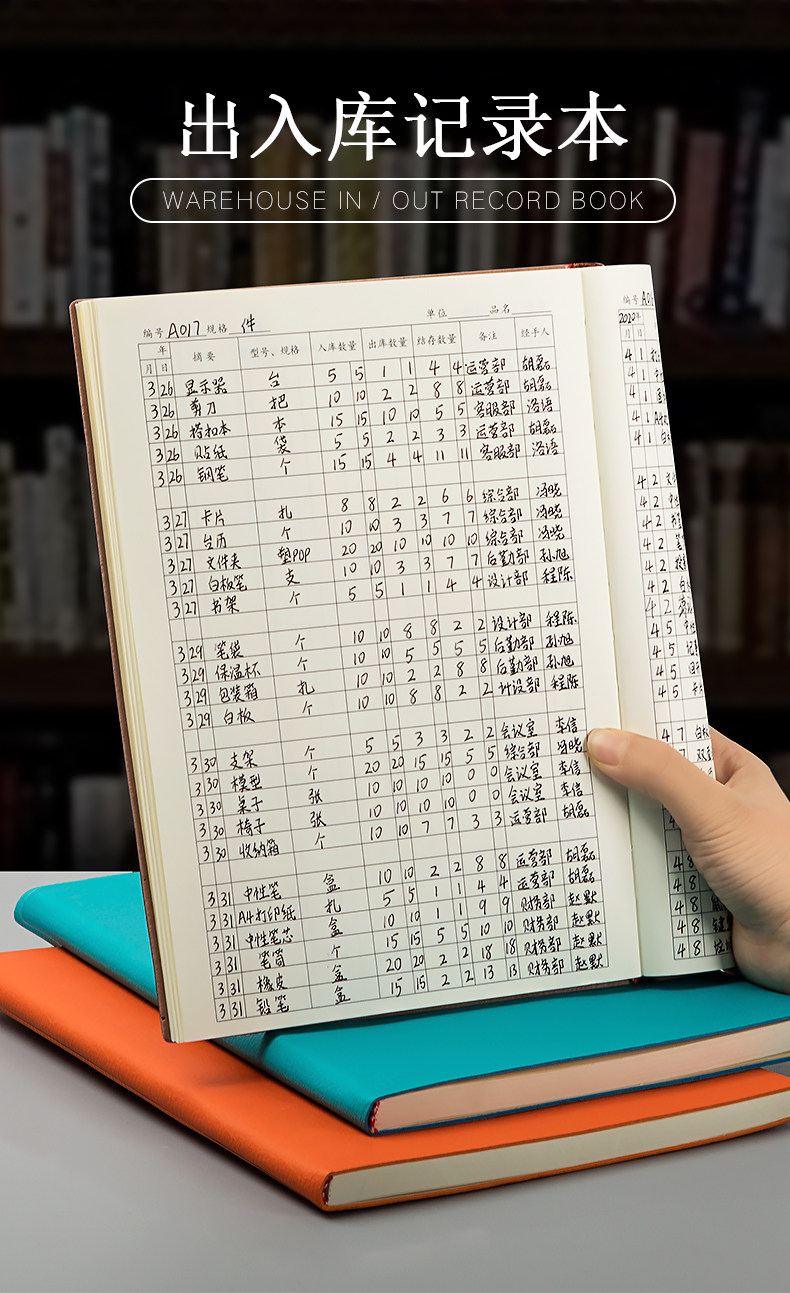 出入库记录本
WAREHOUSE IN / OUT RECORD BOOK
编号 A017 规格 件 单位 品名
年 摘要 型号、规格 入库数量 出库数量 结存数量 备注 经手人
月 日
3 26 显示器 台 5 5 1 1 4 4 运营部 胡磊
3 26 剪刀 把 10 10 2 2 8 8 运营部 胡磊
3 26 搭扣本 本 15 15 10 10 5 5 客服部 洛语
3 26 贴纸 袋 5 5 2 2 3 3 运营部 胡磊
3 26 钢笔 个 15 15 4 4 11 11 客服部 洛语
3 27 卡片 扎 8 8 2 2 6 6 综合部 冯晓
3 27 台历 个 10 10 3 3 7 7 综合部 冯晓
3 27 文件夹 塑POP 20 20 10 10 10 10 综合部 冯晓
3 27 白板笔 支 10 10 3 3 7 7 后勤部 孙旭
3 27 书架 个 5 5 1 1 4 4 设计部 程陈
3 29 笔袋 个 10 10 8 8 2 2 设计部 程陈
3 29 保温杯 个 10 10 5 5 5 5 后勤部 孙旭
3 29 包装箱 扎 10 10 2 2 8 8 后勤部 孙旭
3 29 白板 个 10 10 8 8 2 2 计设部 程陈
3 30 支架 个 5 5 3 3 2 2 会议室 李信
3 30 模型 个 20 20 15 15 5 5 综合部 冯晓
3 30 桌子 张 10 10 10 10 0 0 会议室 李信
3 30 椅子 张 10 10 10 10 0 0 会议室 李信
3 30 收纳箱 个 10 10 7 7 3 3 运营部 胡磊
3 31 中性笔 盒 10 10 2 2 8 8 运营部 胡磊
3 31 A4打印纸 扎 5 5 1 1 4 4 运营部 胡磊
3 31 中性笔芯 盒 10 10 1 1 9 9 财务部 赵默
3 31 笔筒 个 15 15 5 5 10 10 财务部 赵默
3 31 橡皮 盒 20 20 2 2 18 18 财务部 赵默
3 31 铅笔 盒 15 15 2 2 13 13 财务部 赵默
编号 A01
2020年
月 日
4 1
4 1
4 1
4 1
4 1
4 2
4 2
4 2
4 2
4 2
4 2
4 2
4 5
4 5
4 5
4 5
4 7 白板
7 双
4 8
4 8
4 8
4 8
4 8